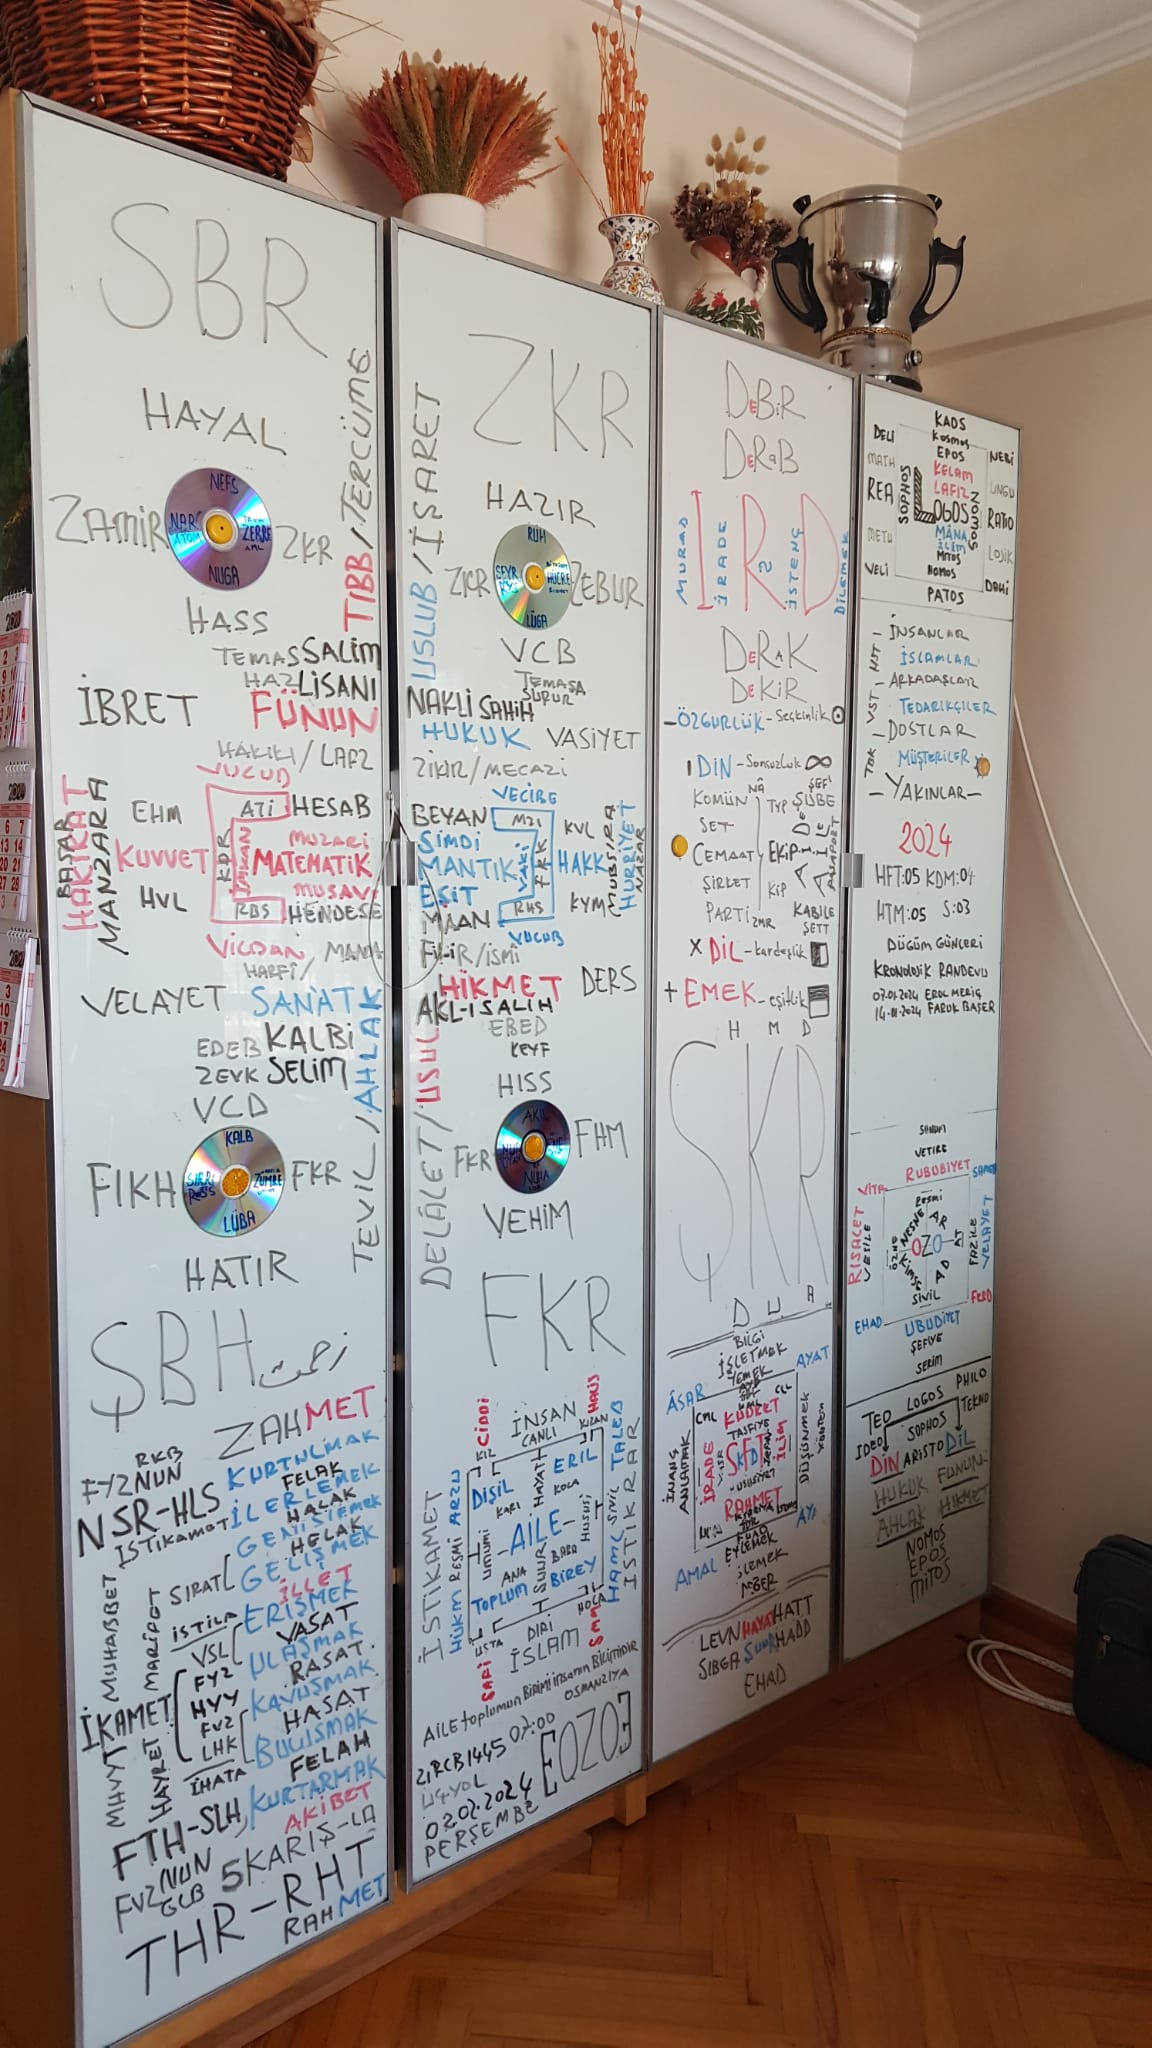 SBR
HAYAL
TIBB/TERCÜME
NEFS
ZAMİR
ATOM
ZERRE
ZKR
NUGA
HASS
TEMAS SALİM
HAZ LİSANI
İBRET
FÜNUN
HAKİKİ/LAFZ
VUCUD
HAKİKAT
MANZARA
EHM
KUVVET
HVL
ATİ
HESAB
KDR
İMKAN
MUZARİ
MATEMATİK
MUSAVİ
RBS
HENDESE
VİCDAN
MANA
HARFİ/
VELAYET
SANAT
KALBİ
EDEB
ZEVK SELİM
VCD
TEVİL/AHLAK
KALB
FIKH
ZUMRE
FKR
LÜBA
HATIR
ŞBH
زحمت
ZAHMET
RKB
FYZ NUN
NSR-HLS
İSTİKAMET
KURTULMAK
FELAK
İLERLEMEK
HALAK
GENİŞLEMEK
HELAK
GELİŞMEK
SIRAT
İLLET
ERİŞMEK
MUHABBET
MARİFET
İSTİLA
VASAT
VSL
ULAŞMAK
RASAT
FYZ
KAVUŞMAK
İKAMET
HYY
HASAT
FVZ
BULUŞMAK
LHK
FELAH
MHVYT
HAYRET
İHATA
KURTARMAK
FTH-SLH,
AKİBET
FVZ NUN
GLB
5KARIŞ-LA
THR-RHT
RAHMET
ZKR
USLUB/İŞARET
HAZIR
RUH
ZKR
HÜCRE
ZEBUR
LÜGA
VCB
TEMAŞA
SURUR
NAKLİ SAHİH
HUKUK
VASİYET
ZİKİR/MECAZİ
VECİBE
BEYAN
MZİ
KVL
ŞİMDİ
MANTIK
VAKİ
FRK
HAKK
EŞİT
MAAN
RHS
KYM
MUBSIRA
HURRİYET
NAZAR
VUCUB
FİKİR/İSMİ
HİKMET
DERS
AKL-I SALİH
EBED
KEYF
HISS
DELÂLET/USUL
AKIL
FKR
NUHA
FHM
VEHİM
FKR
CİDDİ
HALİS
İNSAN
CANLI
KIZ
KIZAN
İSTİKAMET
HÜKM RESMİ ARZU
DİŞİL
HAYAT
ERİL
KARI
KOCA
UMUMİ
-AİLE-
HUSUSİ
HAML SİVİL TALEB
İSTİKRAR
ANA
ŞUUR
BABA
TOPLUM
BİREY
USTA
HOCA
DİRİ
İSLAM
SAFİ
AİLE toplumun BİRİMİ insanın BİLİMİDİR
OSMANZİYA
21RCB1445 07:00
ÜÇYOL
02.02.2024
PERŞEMBE
EOZOE
DeBiR
DeRaB
IRD
MURAD
İRADE
2
İSTENÇ
DİLEMEK
DeRaK
DeKiR
-ÖZGÜRLÜK-Seçkinlik
DİN-Sonsuzluk ∞
KOMÜN
NÂ
TYP
ŞEF
ŞUBE
SET
CEMAAT
EKİP
ŞİRKET
KİP
PARTİ
ZMR
KABİLE
ŞETT
X DİL-kardeşlik
+ EMEK-eşitlik
H M D
ŞKR
D U A
BİLGİ
İŞLETMEK
YEMEK
ÂSAB
AYAT
İNANÇ
ANLAMAK
CML
CLL
KUDRET
TASFİYE
İRADE
SFT
İLİM
DÜŞÜNMEK
YÖNTEM
RAHMET
AMAL
EYLEMEK
LEVN HAYAT HATT
SIBGA ŞUUR HADD
EHAD
KAOS
Kosmos
EPOS
DELİ
NEBİ
MATH
KELAM
LAFIZ
LİNGU
REA
SOPHOS
LOGOS
RATIO
MANA
İLİM
METU
MİTOS
LOJİK
NOMOS
VELİ
DAHİ
PATOS
- İNSANLAR
İSLAMLAR
- ARKADAŞLAR
TEDARİKÇİLER
- DOSTLAR
MÜŞTERİLER
- YAKINLAR -
2024
HFT:05 KDM:04
HTM:05 S:03
DÜĞÜM GÜNLERİ
KRONOLOJİK RANDEVU
EROL MERİÇ
FARUK BAŞER
VETİRE
RUBUBİYET
RESMİ
RİSALET
VESİLE
ÖZNE
NESNE
OZO
KİMSE
FAZİLE
VELAYET
SİVİL
FERD
EHAD
UBUDİYET
ŞEFİYE
SERİM
LOGOS
PHILO
TEO
SOPHOS
TEKNO
İDEO
DİN
ARİSTO
DİL
HUKUK
FUNUN
AHLAK
HİKMET
NOMOS
EPOS
MİTOS